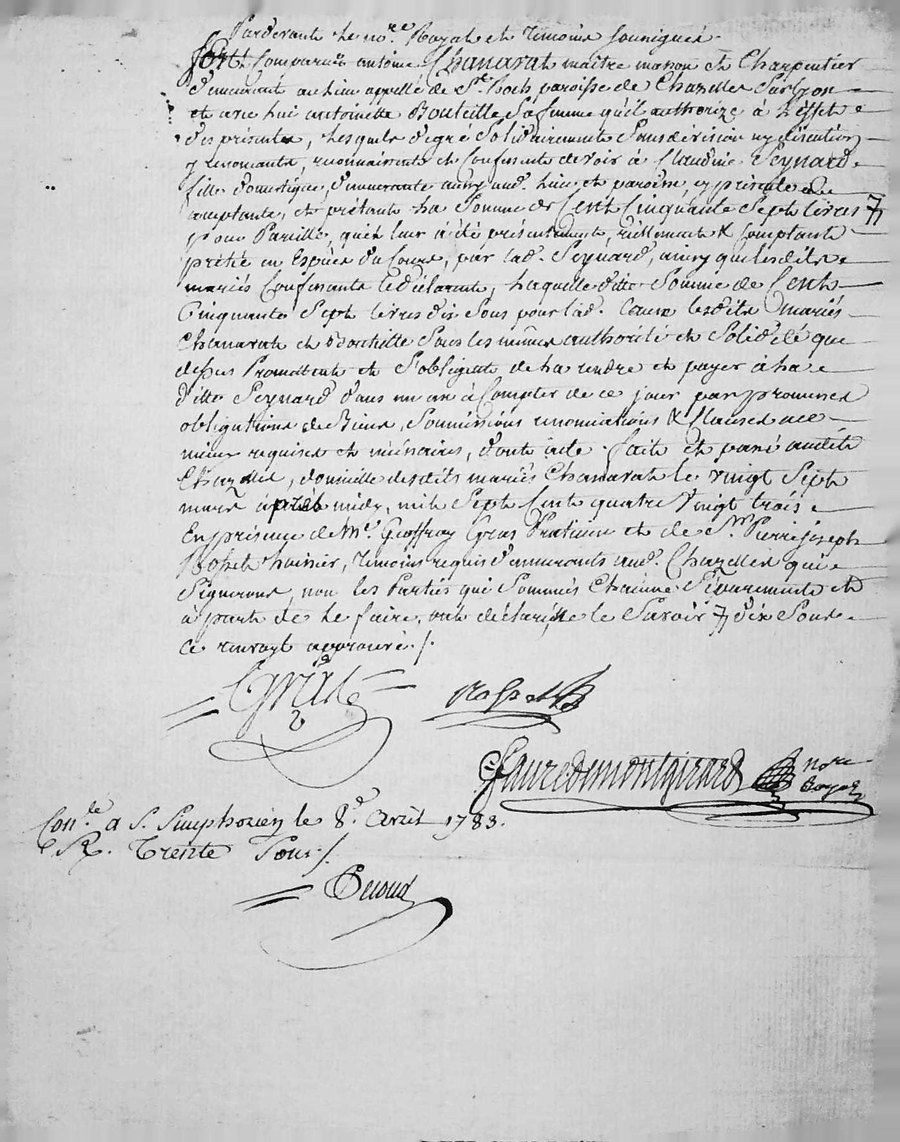 Pardevant le no.re Royal et temoins soussignés
sont Comparus antoine Chanarat maitre masson et Charpentier
demeurant au lieu appellé de St. Roch paroisse de Chazelles sur Lyon
et avec lui antoinette Bouteille sa femme qu'il authorize à l'effet
des présentes, lesquels de gré solidairement sans division ny discution
y renonçants, reconnaissent et Confessent devoir à Claudine Seynard
fille domestique, demeurante audit. lieu et paroisse, cy présente et
acceptante, et prétante la somme de Cent Cinquante Sept livres ⁊
pour Pareille, qu'elle leur a été présentement, réellement & Comptant
prétée en Espèces du Cours, par lad. Seynard, ainsy que lesdits
mariés Confessent et déclarent, laquelle ditte Somme de Cent
Cinquante Sept livres dix sous pour lad. Cause lesdits mariés
Chanarat et Bouteille sous les mêmes authorité et Solid.té que
dessus Promettent et s'obligent de la rendre et payer à la
ditte Seynard dans un an à Compter de ce jour par promesses
obligations de Biens, Soumissions renonciations & Clauses
mieux requises et nécéssaires, dont acte fait et passé audit
Chazelles, domicille desdits mariés Chanarat le vingt Sept
mars après midy, mil Sept Cent quatre Vingt trois
En présence de Me. Geoffray Gras Praticien et de Sr. Pierre joseph
huissier, temoins requis demeurants aud. Chazelles qui
Signeront, non les Parties qui Sommés Chacune Séparement et
à part de le faire, ont déclaré ne le Savoir ⁊ dix Sous
ce renvoy approuvé /.
Gras
Fauredemontgirard no.re
Royal
Con.lé a S. Simphorien le 8.e Avril 1783.
R. Trente Sous /.